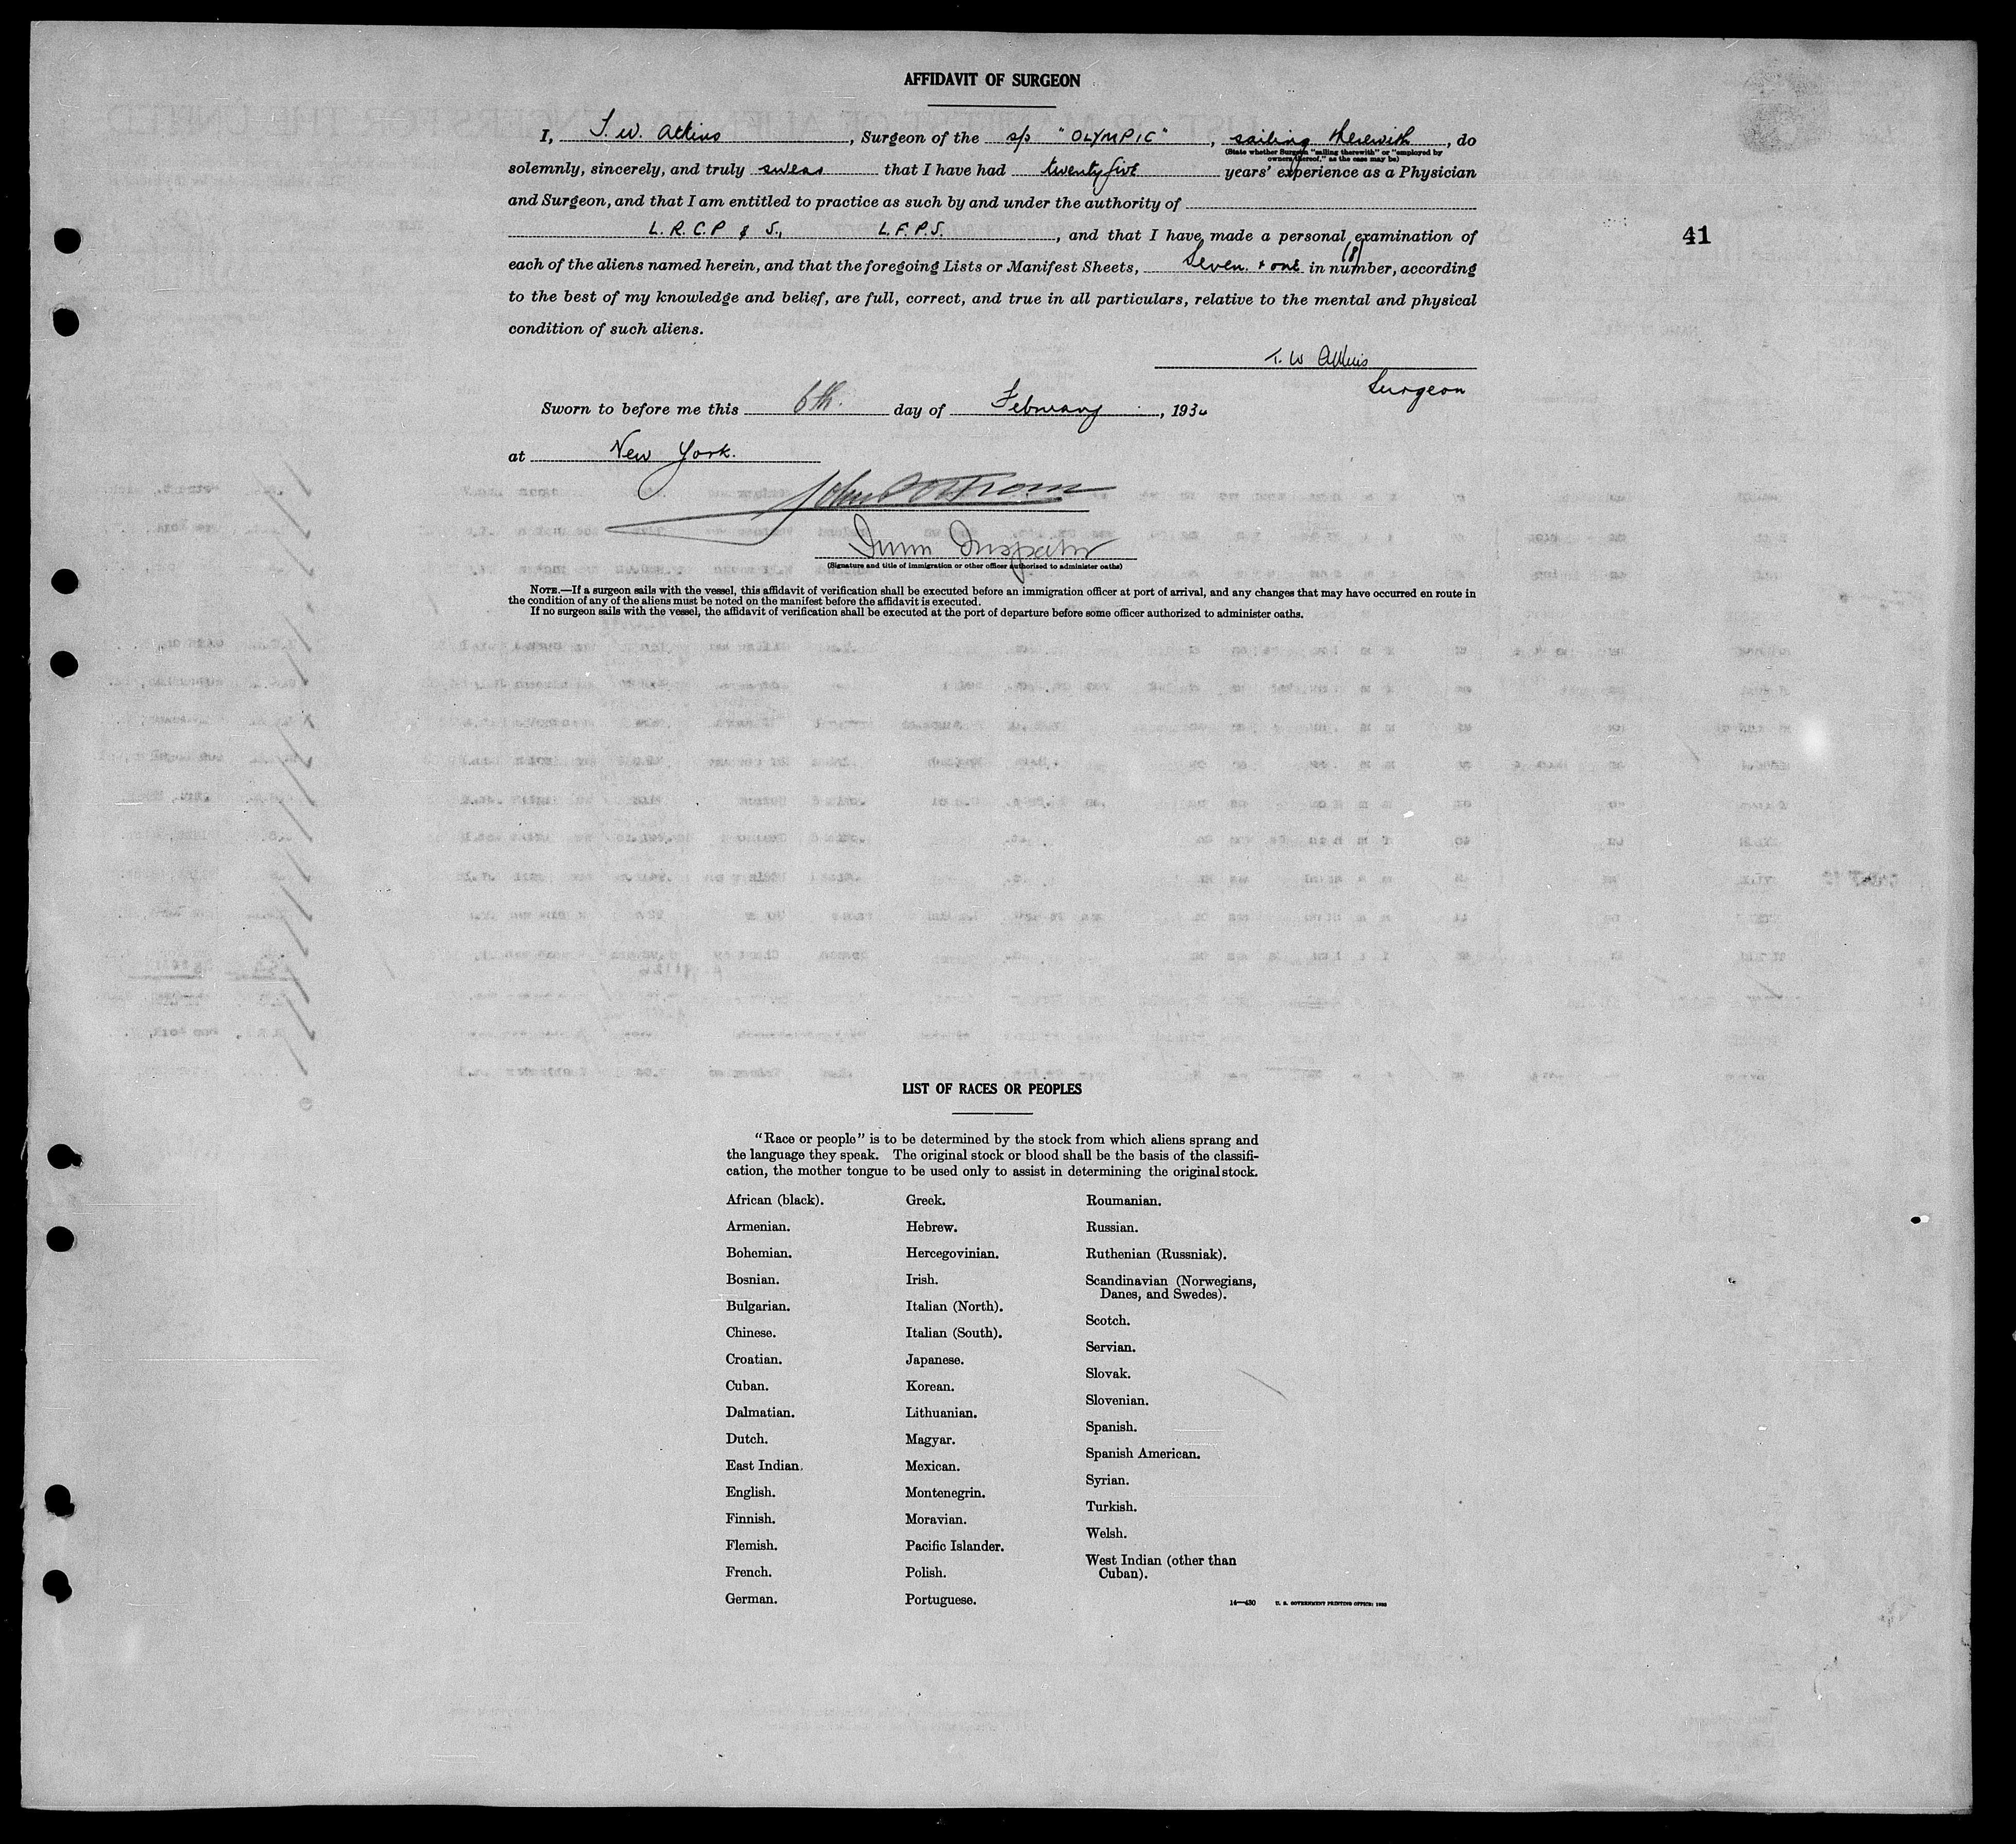 AFFIDAVIT OF SURGEON
I, T. W. Atkins, Surgeon of the s/s "OLYMPIC", sailing therewith, do
(State whether Surgeon "sailing therewith" or "employed by
owners thereof," as the case may be)
solemnly, sincerely, and truly swear that I have had twenty five years' experience as a Physician
and Surgeon, and that I am entitled to practice as such by and under the authority of
L. R. C. P & S., L. F. P. S., and that I have made a personal examination of
41
(8)
each of the aliens named herein, and that the foregoing Lists or Manifest Sheets, Seven + one in number, according
to the best of my knowledge and belief, are full, correct, and true in all particulars, relative to the mental and physical
condition of such aliens.
T. W Atkins
Surgeon
Sworn to before me this 6th. day of February, 193
at New York.
John
Imm Inspector
(Signature and title of immigration or other officer authorized to administer oaths)
NOTE.—If a surgeon sails with the vessel, this affidavit of verification shall be executed before an immigration officer at port of arrival, and any changes that may have occurred en route in
the condition of any of the aliens must be noted on the manifest before the affidavit is executed.
If no surgeon sails with the vessel, the affidavit of verification shall be executed at the port of departure before some officer authorized to administer oaths.
LIST OF RACES OR PEOPLES
"Race or people" is to be determined by the stock from which aliens sprang and
the language they speak. The original stock or blood shall be the basis of the classifi-
cation, the mother tongue to be used only to assist in determining the original stock.
African (black).
Armenian.
Bohemian.
Bosnian.
Bulgarian.
Chinese.
Croatian.
Cuban.
Dalmatian.
Dutch.
East Indian.
English.
Finnish.
Flemish.
French.
German.
Greek.
Hebrew.
Hercegovinian.
Irish.
Italian (North).
Italian (South).
Japanese.
Korean.
Lithuanian.
Magyar.
Mexican.
Montenegrin.
Moravian.
Pacific Islander.
Polish.
Portuguese.
Roumanian.
Russian.
Ruthenian (Russniak).
Scandinavian (Norwegians,
Danes, and Swedes).
Scotch.
Servian.
Slovak.
Slovenian.
Spanish.
Spanish American.
Syrian.
Turkish.
Welsh.
West Indian (other than
Cuban).
14—430 U. S. GOVERNMENT PRINTING OFFICE: